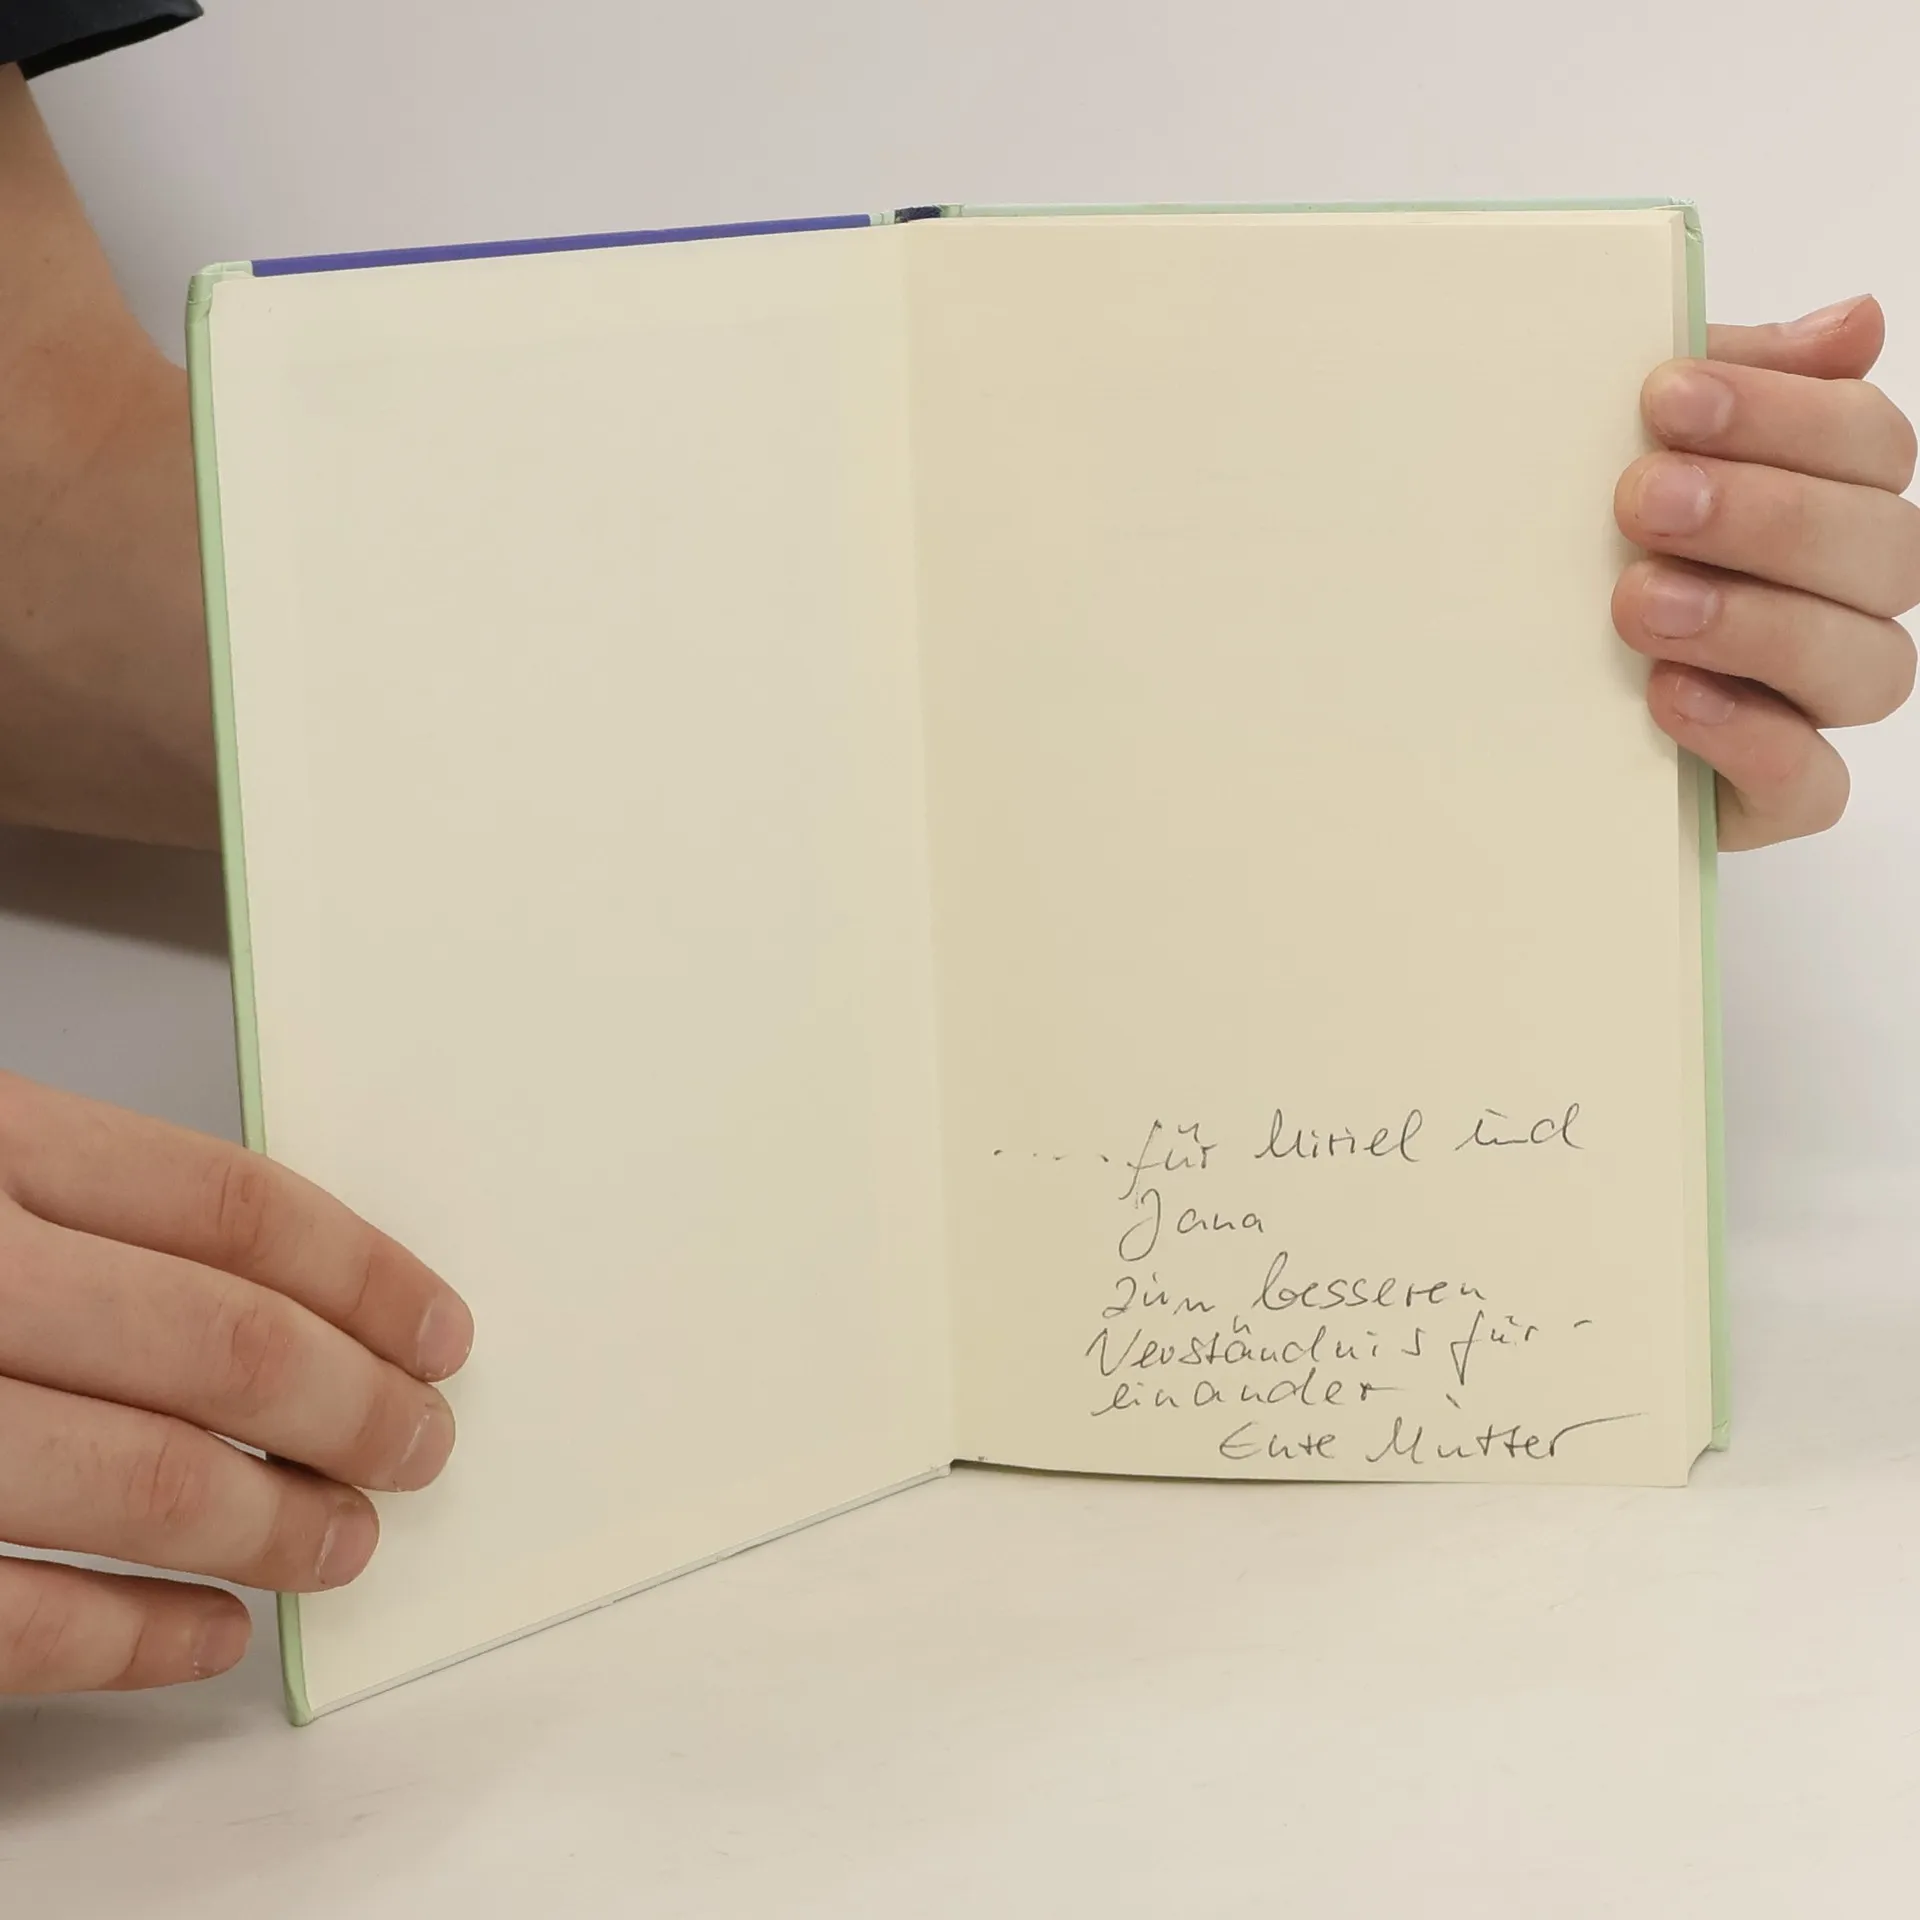 .... für Miriel und
Jana
zum besseren
Verständnis für-
einander!
Eure Mutter